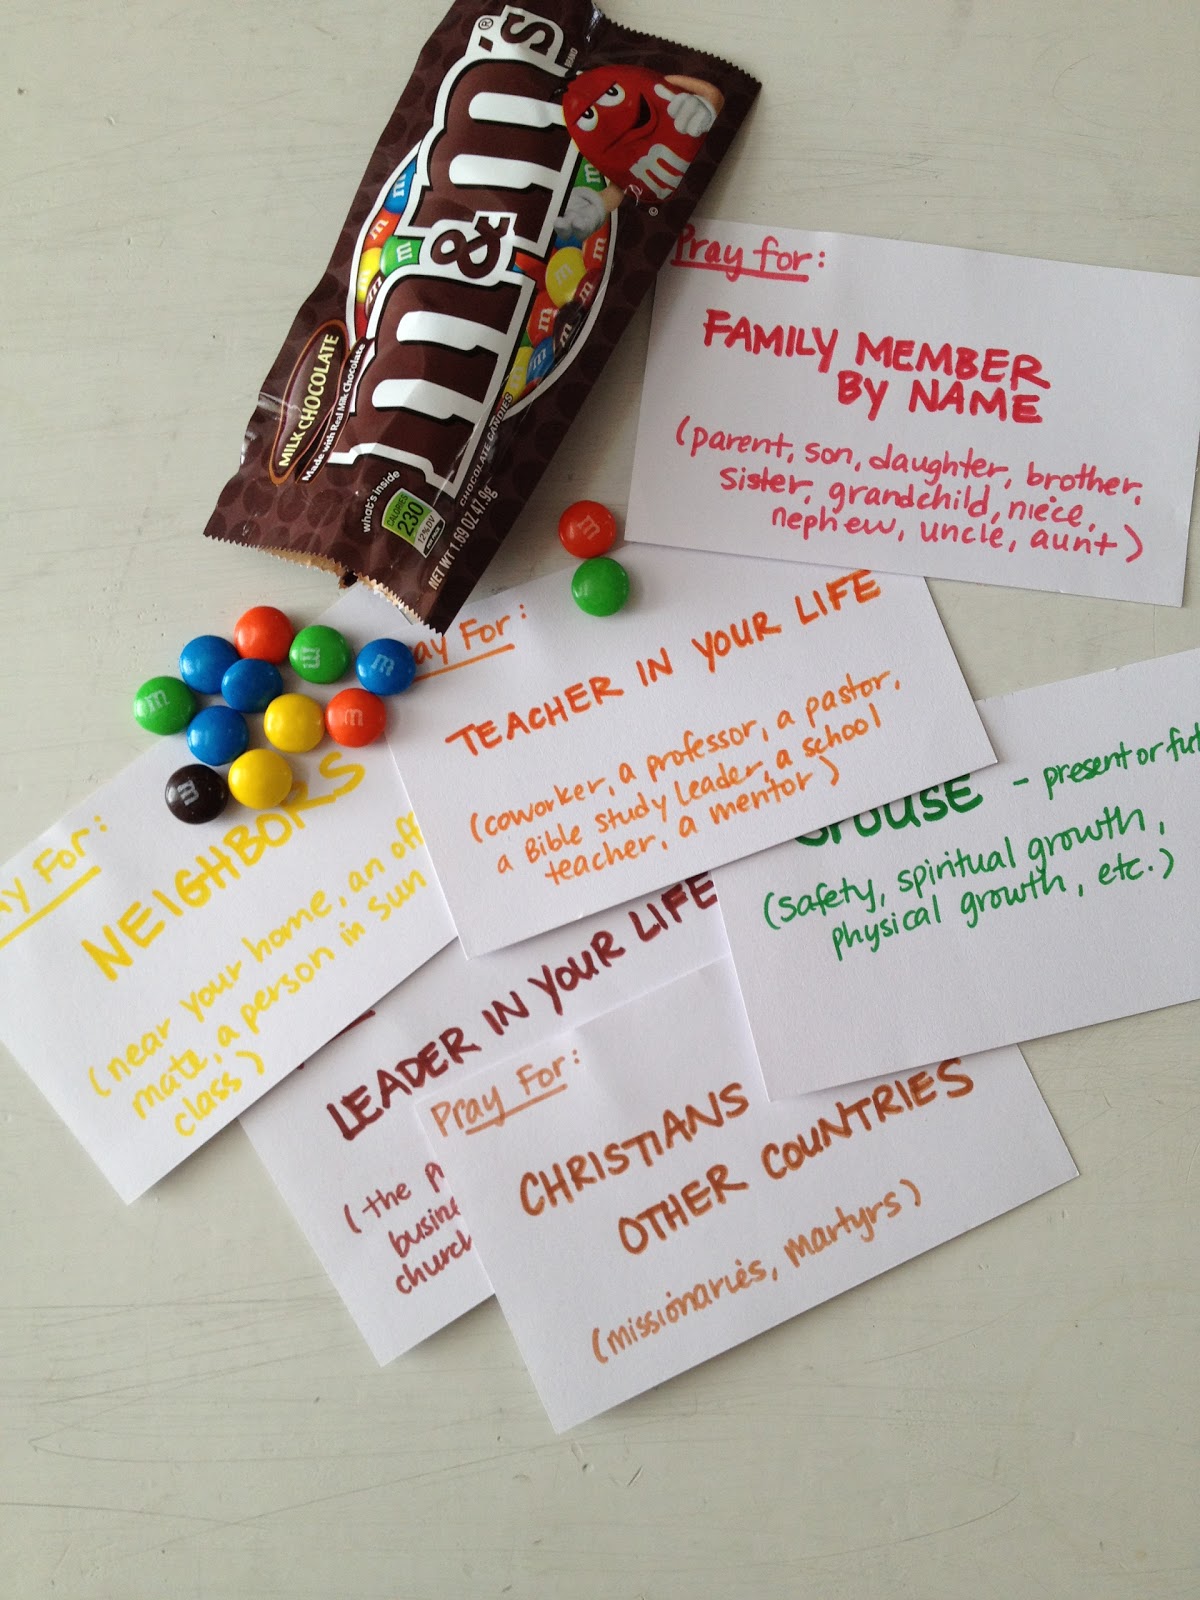 m&m's®
BRAND
MILK CHOCOLATE
Made with Real Milk Chocolate
CHOCOLATE CANDIES
what's inside
CALORIES
230
12% DV
NET WT 1.69 OZ 47.9g
Pray for:
FAMILY MEMBER
BY NAME
(parent, son, daughter, brother,
sister, grandchild, niece,
nephew, uncle, aunt)
ay For:
TEACHER IN YOUR LIFE
(coworker, a professor, a pastor,
a Bible study leader, a school
teacher, a mentor)
SPOUSE - present or fut
(safety, spiritual growth,
physical growth, etc.)
ay For:
NEIGHBORS
(near your home, an off
mate, a person in Sun
class)
LEADER IN YOUR LIFE
(the p
busine
church
Pray For:
CHRISTIANS
OTHER COUNTRIES
(missionaries, martyrs)